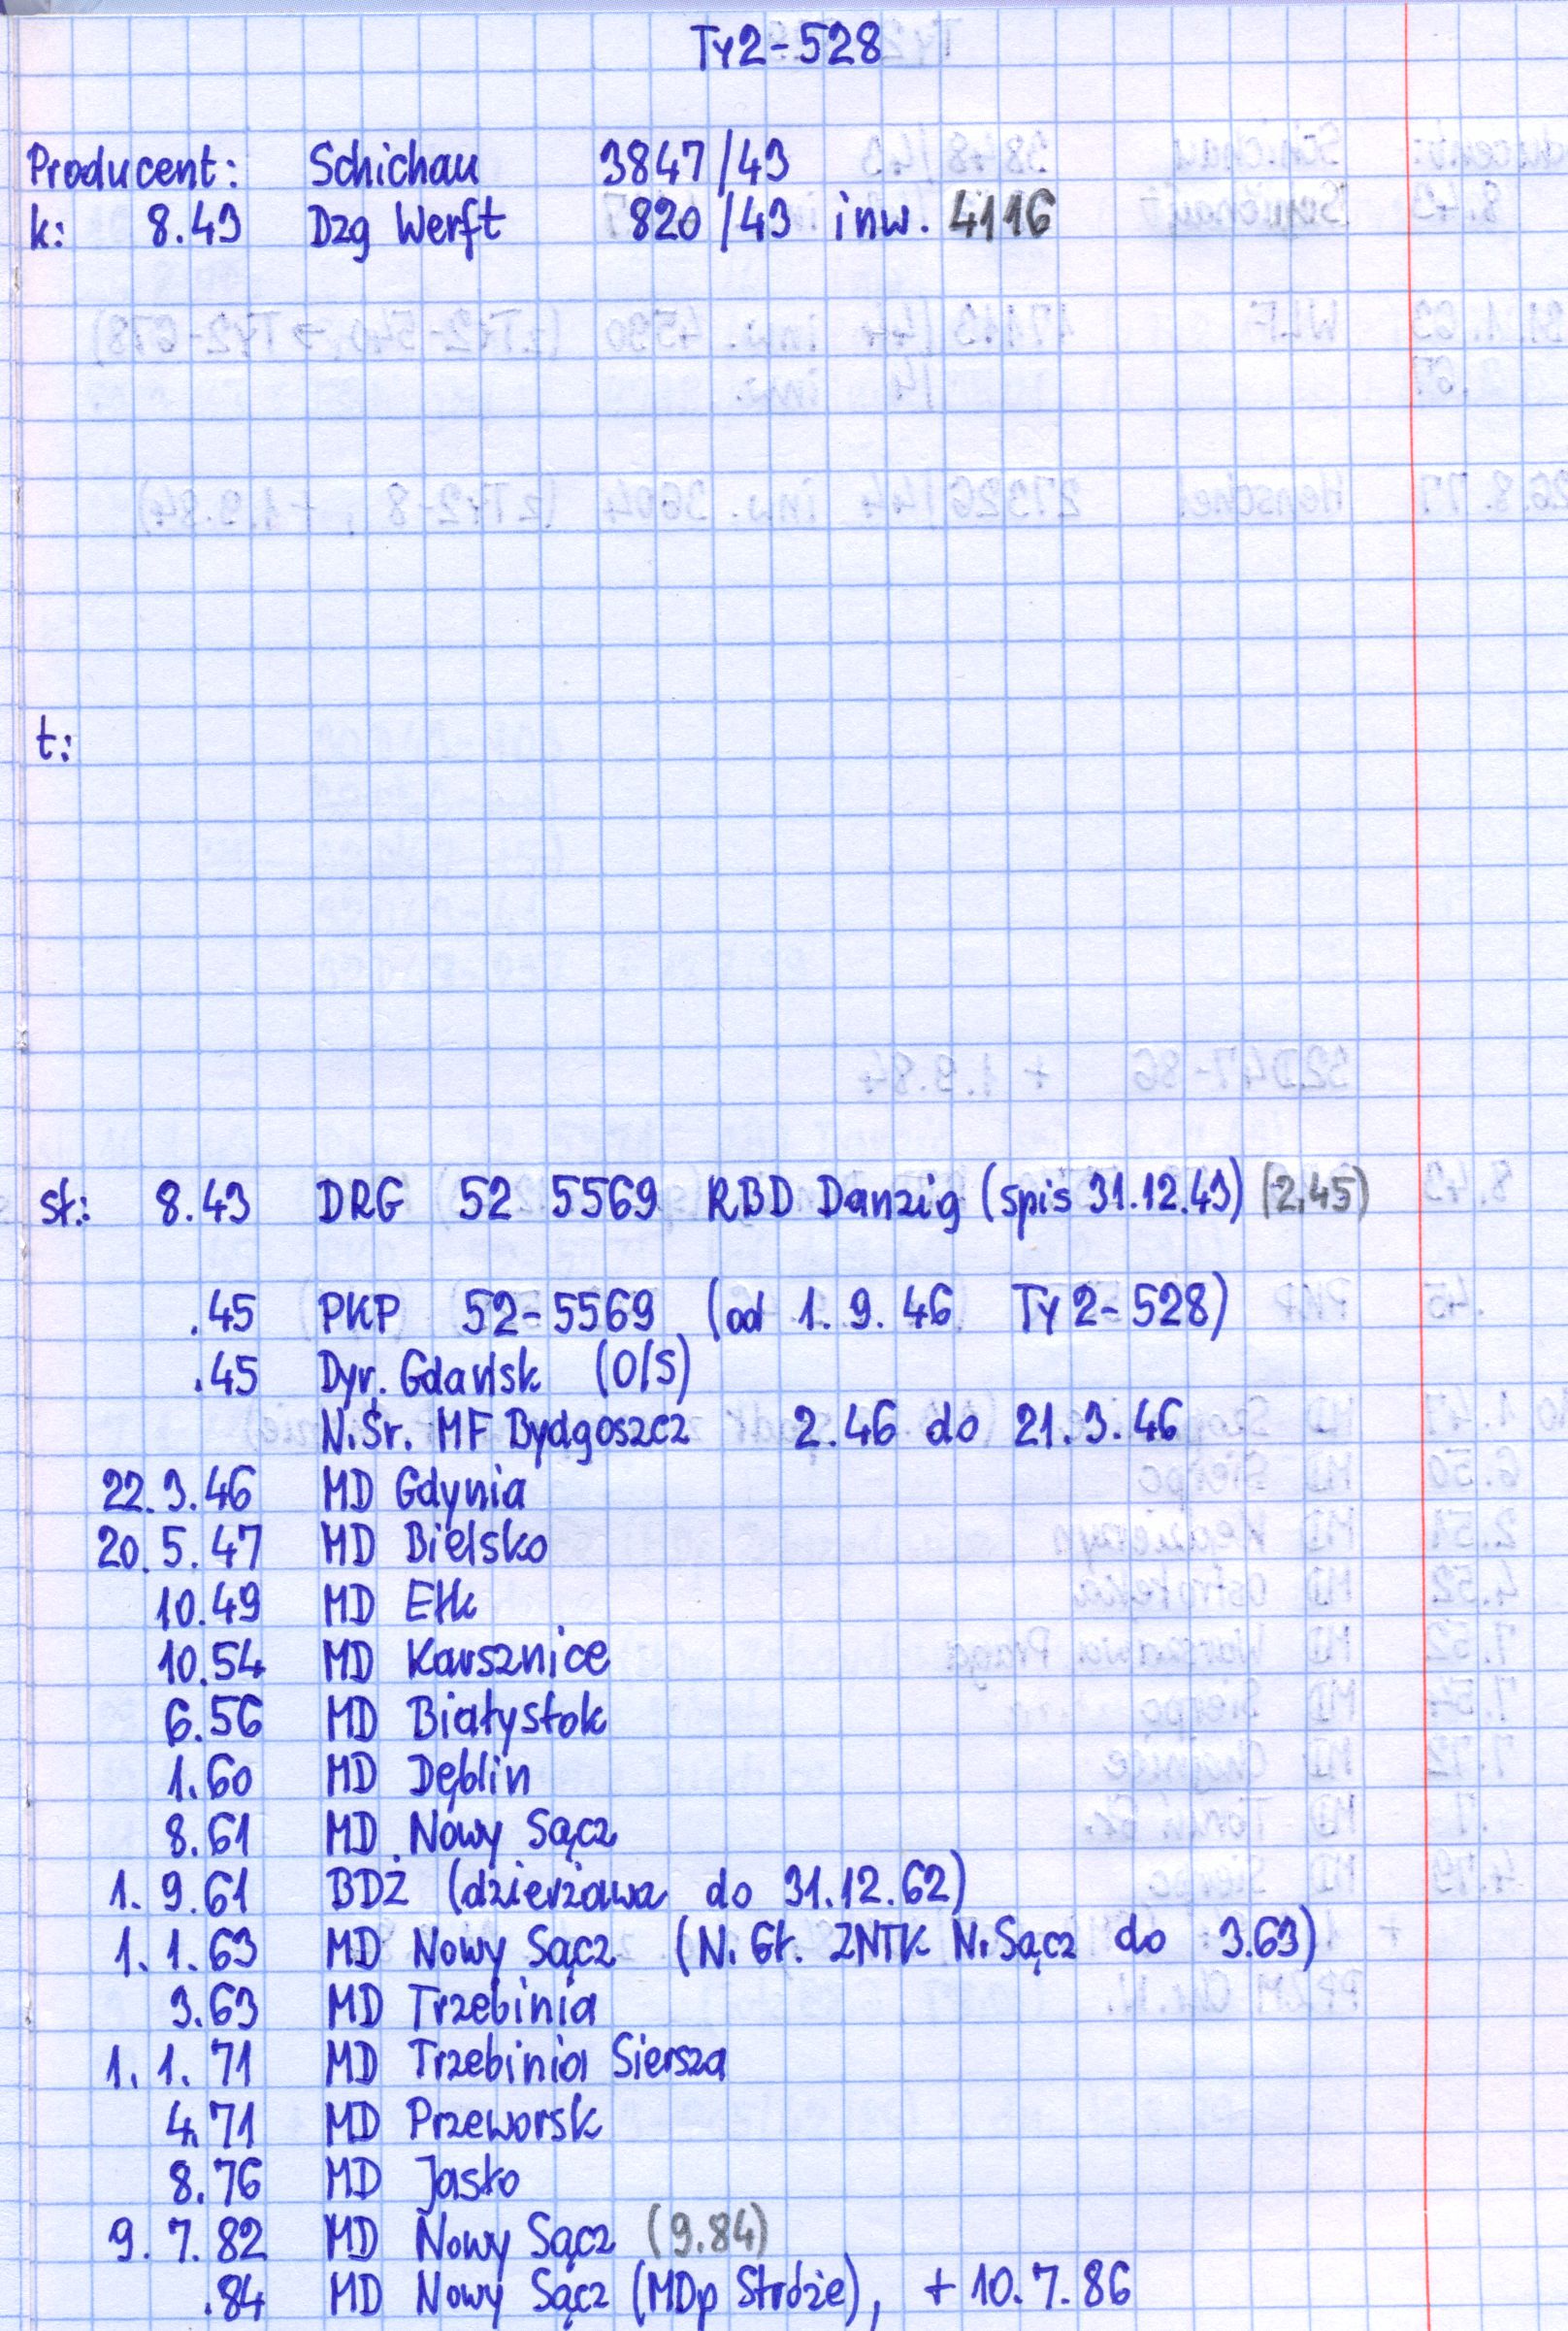 Ty2-528
Producent: Schichau 3847/43
k: 8.43 Dzg Werft 820/43 inw. 4116
t:
st: 8.43 DRG 52 5569 RBD Danzig (spis 31.12.43) (2.45)
.45 PKP 52-5569 (od 1.9.46 Ty2-528)
.45 Dyr. Gdańsk (O/S)
N.Śr. MF Bydgoszcz 2.46 do 21.3.46
22.3.46 MD Gdynia
20.5.47 MD Bielsko
10.49 MD Ełk
10.54 MD Karsznice
6.56 MD Białystok
1.60 MD Dęblin
8.61 MD Nowy Sącz
1.9.61 BDŻ (dzierżawa do 31.12.62)
1.1.63 MD Nowy Sącz (N.Gł. ZNTK N.Sącz do 3.63)
3.63 MD Trzebinia
1.1.71 MD Trzebinia Siersza
4.71 MD Przeworsk
8.76 MD Jasło
9.7.82 MD Nowy Sącz (9.84)
.84 MD Nowy Sącz (MDp Stróże), + 10.7.86